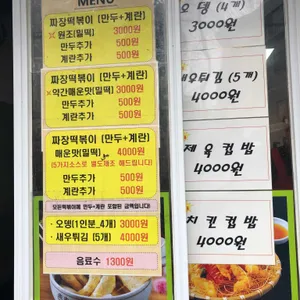 MENU
짜장떡볶이 (만두+계란)
※ 원조(밀떡) 3000원
만두추가 500원
계란추가 500원
짜장떡볶이 (만두+계란)
※ 약간매운맛(밀떡) 3000원
만두추가 500원
계란추가 500원
짜장떡볶이 (만두+계란)
매운맛(밀떡) 4000원
(5가지소스로 별도제조 해드립니다)
만두추가 500원
계란추가 500원
모든떡볶이에 만두+계란 포함된 금액입니다!
· 오뎅(1인분_4개) 3000원
· 새우튀김 (5개) 4000원
음료수 1300원
오뎅 (4개)
3000원
새우튀김 (5개)
4000원
제육컵밥
4000원
치킨컵밥
4000원